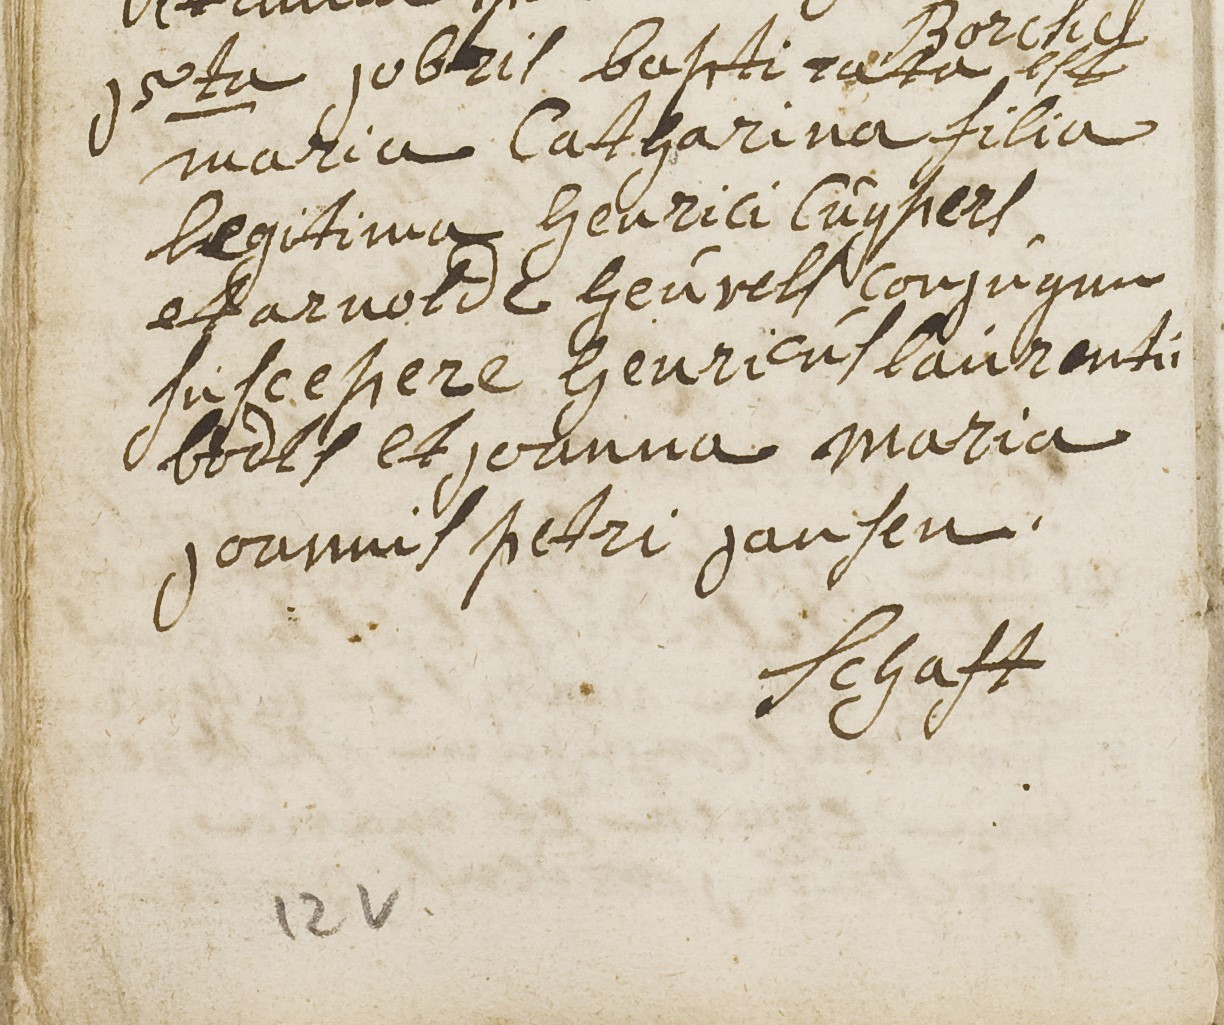 Borchel
15ta jobris baptizata est
maria Catharina filia
legitima henrici Cuÿpers
et arnoldæ heuvels conjugum
suscepere henricus laurentii
bodls et joanna maria
joannis petri jansen.
Schaft
12 V